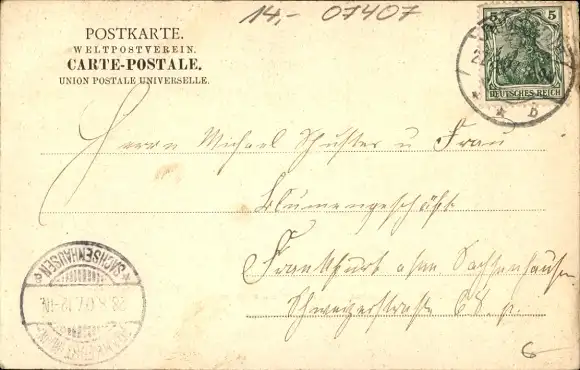 14,- 07407
POSTKARTE.
WELTPOSTVEREIN.
CARTE-POSTALE.
UNION POSTALE UNIVERSELLE.
5
DEUTSCHES REICH
b
Herrn Michael Schuster u Frau
Blumengeschäft
Frankfurt a/m Sachsenhausen
Schweizerstraße 64. p.
SACHSENHAUSEN
23.8.07. 12-1N.
FRANKFURT
6